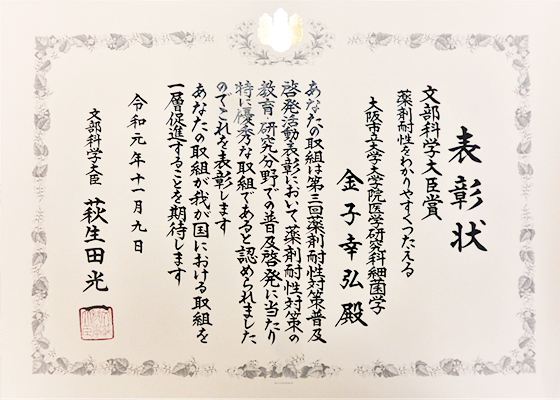 表彰状
文部科学大臣賞
薬剤耐性をわかりやすくつたえる
大阪市立大学大学院医学研究科細菌学
金子幸弘殿
あなたの取組は第三回薬剤耐性対策普及
啓発活動表彰において薬剤耐性対策の
教育・研究分野での普及啓発に当たり
特に優秀な取組であると認められました
のでこれを表彰します
あなたの取組が我が国における取組を
一層促進することを期待します
令和元年十一月九日
文部科学大臣 萩生田光一